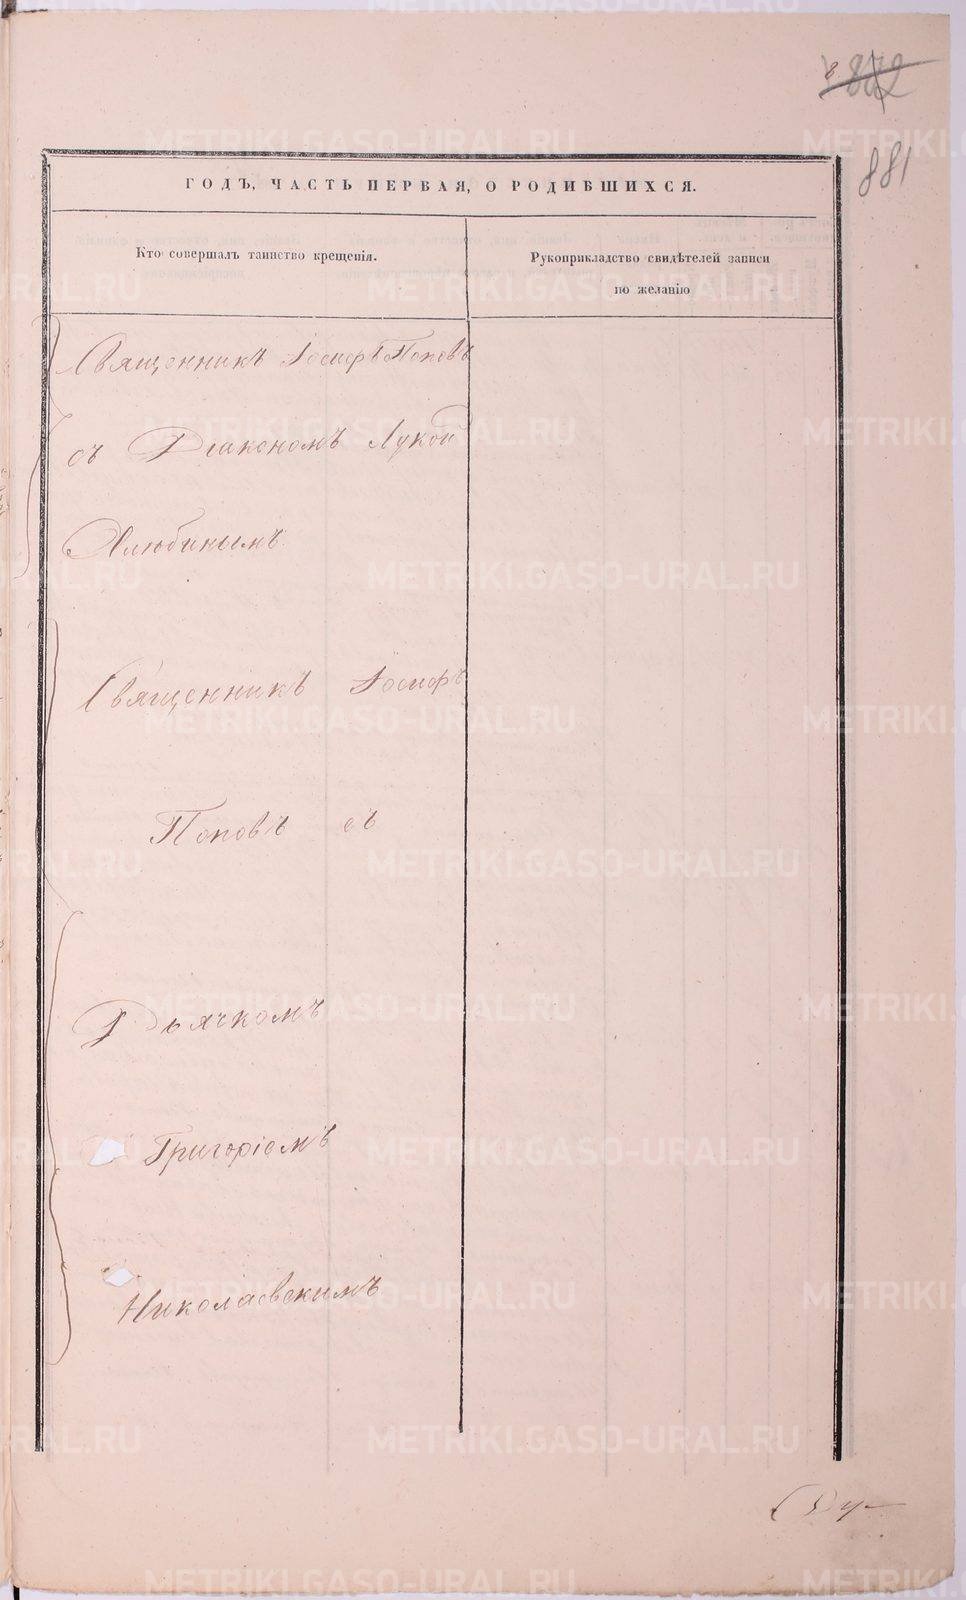 882
881
ГОДЪ, ЧАСТЬ ПЕРВАЯ, О РОДИВШИХСЯ.
Кто совершалъ таинство крещенія.
Рукоприкладство свидѣтелей записи
по желанію
Священникъ Іосифъ Поповъ
съ Діакономъ Лукой
Хлюбинымъ
Священникъ Іосифъ
Поповъ съ
Дьячкомъ
Григоріемъ
Николаевскимъ
METRIKI.GASO-URAL.RU